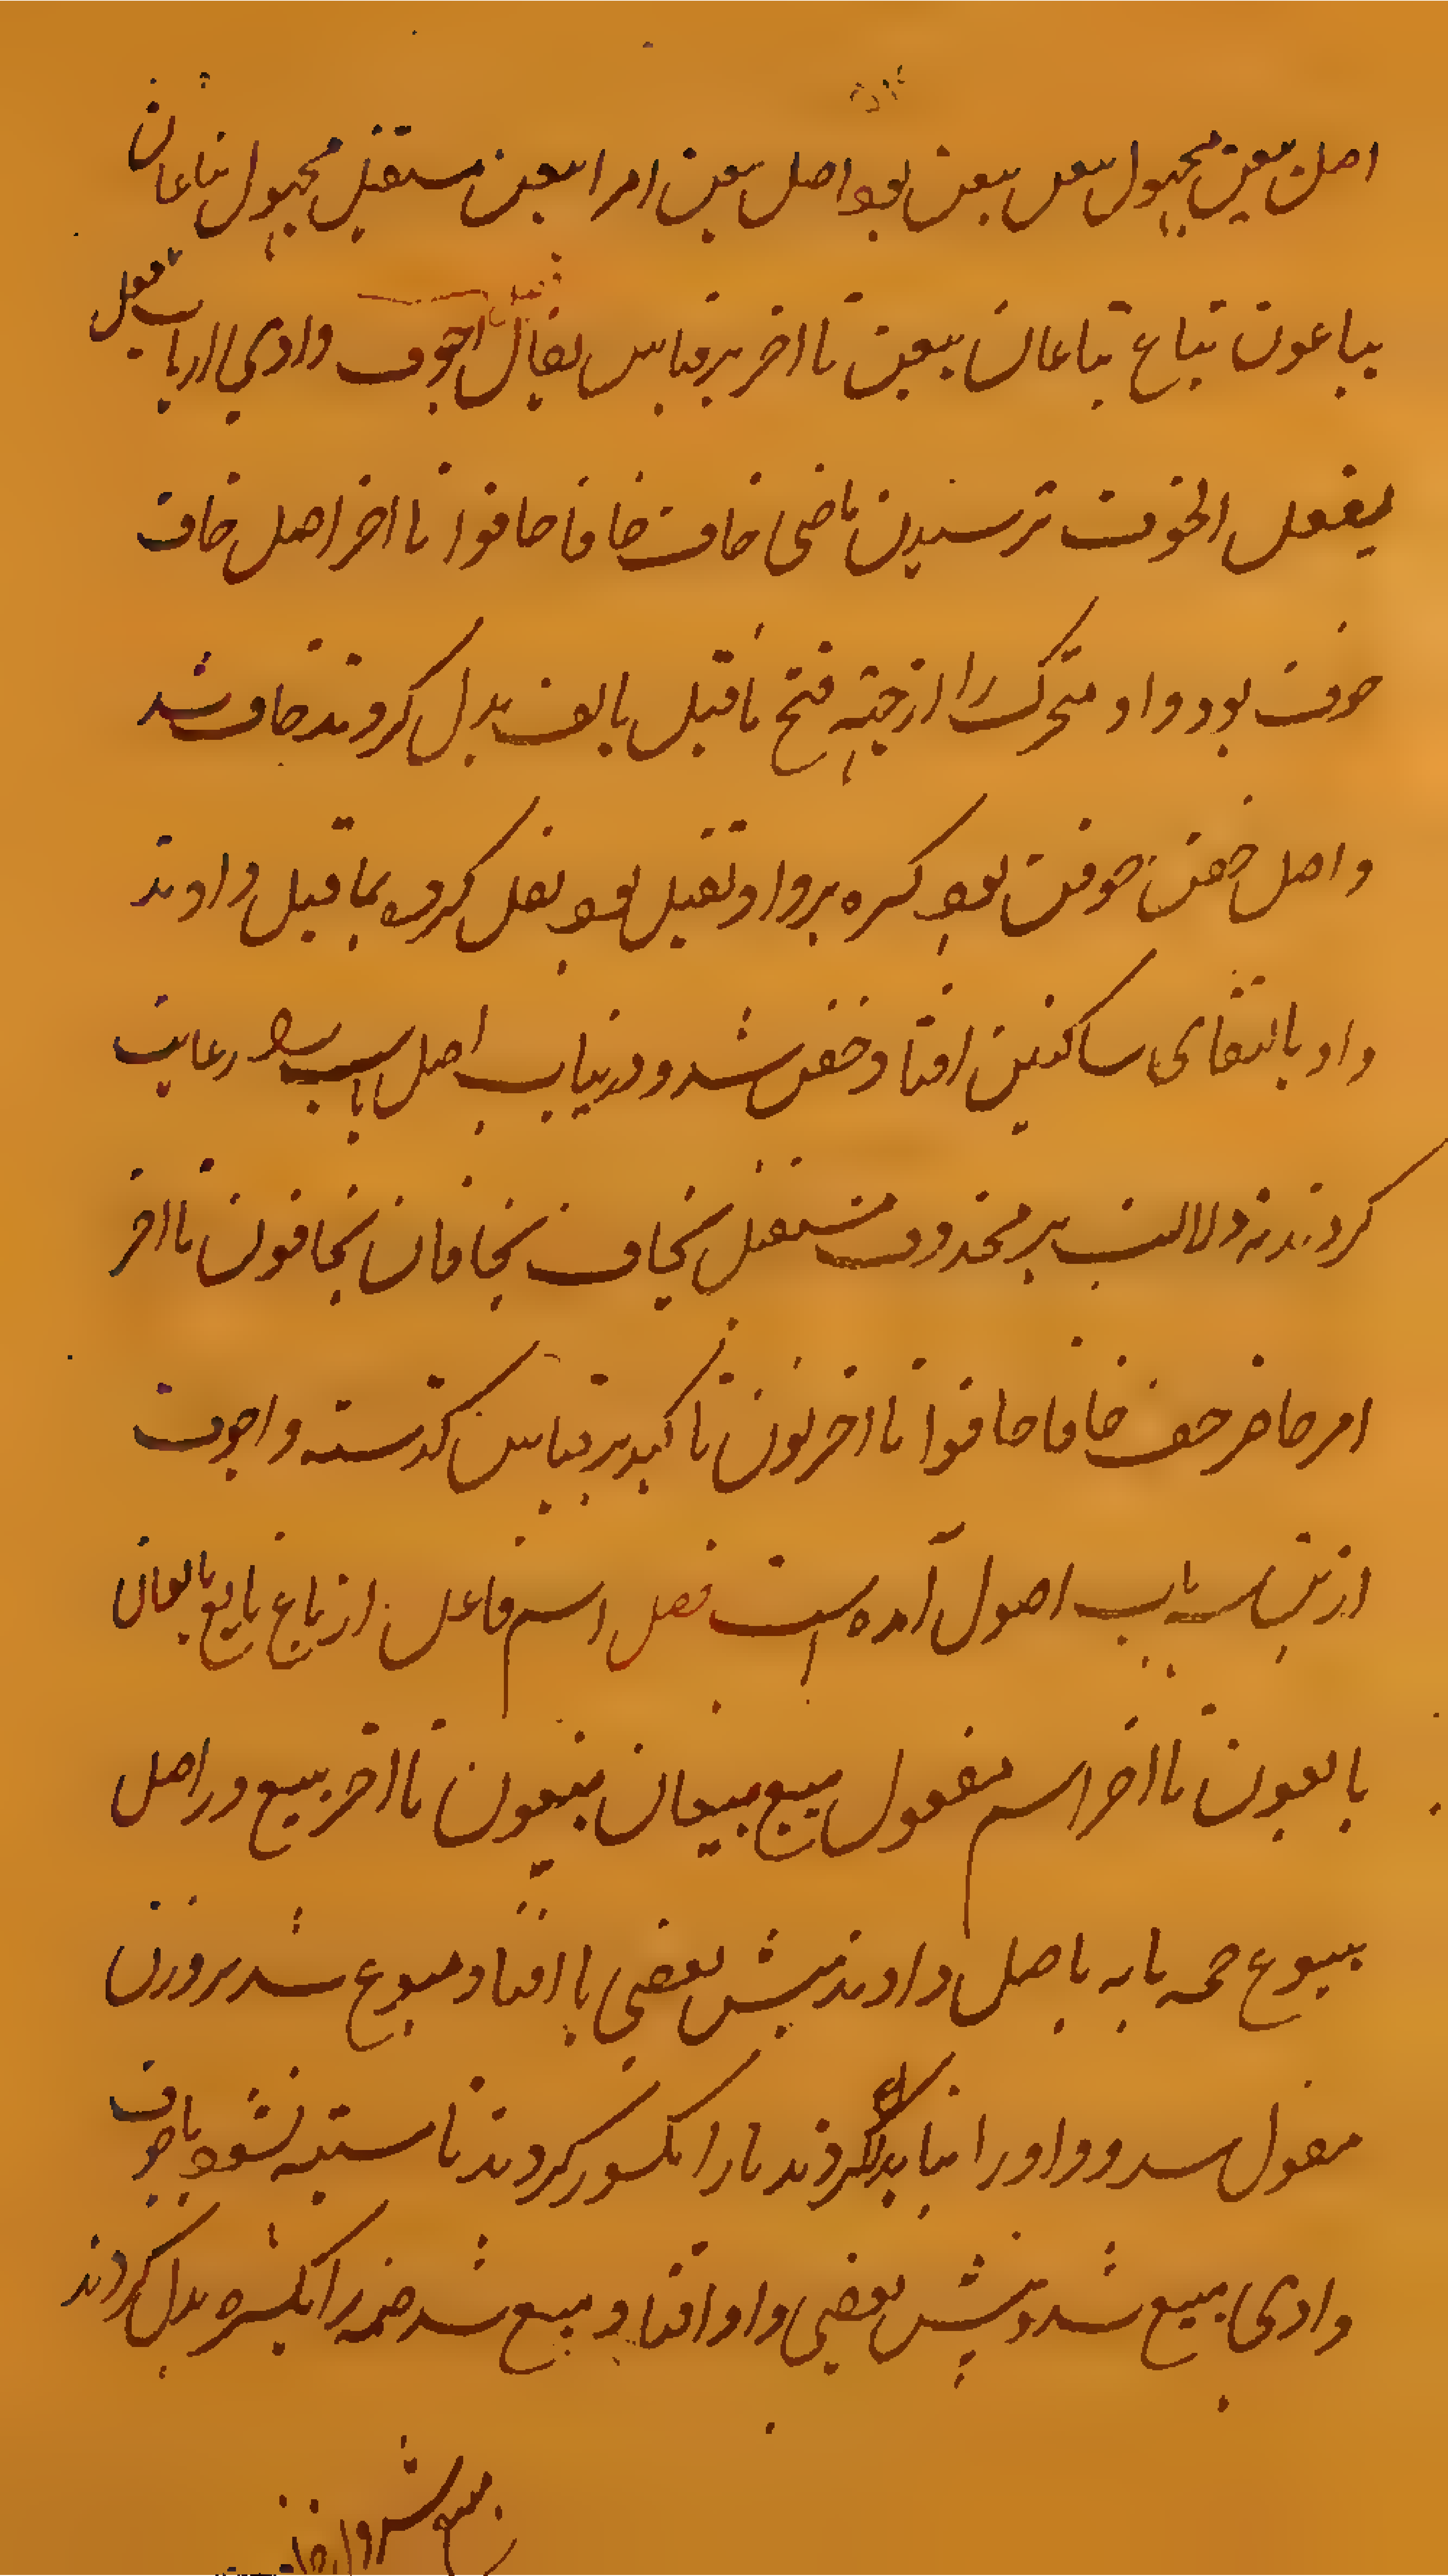 اصل بعن مجهول بعن بیعن بود اصل بعن امر ابیعن مستقبل مجهول یباع یباعان
یباعون تباع تباعان یبعن تا اخر بر قیاس یقال اجوف واوی از باب فعل
یفعل الخوف ترسیدن ماضی خاف خافا خافوا تا اخر اصل خاف
خوف بود واو متحرک را از جهته فتح ماقبل بالف بدل کردند خاف شد
و اصل خفن خوفن بود کسره بر واو ثقیل بود نقل کرده بماقبل دادند
واو بالتقای ساکنین افتاد خفن شد و درین باب اصل باب را رعایت
کردند نه دلالت بر محذوف مستقبل یخاف یخافان یخافون تا اخر
امر حاضر خف خافا خافوا تا اخر نون تاکید بر قیاس گذشته و اجوف
ازین سه باب اصول آمده است فصل اسم فاعل از باع بایع بایعان
بایعون تا اخر اسم مفعول مبیع مبیعان مبیعون تا اخر مبیع در اصل
مبیوع ضمه یا به باصل دادند پیش بعضی یا افتاد مبوع شد بر وزن
مفول شد و واو را بیا بدل کردند با را مکسور کردند تا مشتبه نشود باجوف
واوی مبیع شد و پیش بعضی واو افتاد مبیع شد ضمه را بکسره بدل کردند
مبیع شد